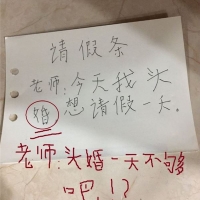 请假条
老师:今天我头
婚想请假一天.
老师:头婚一天不够
吧!?